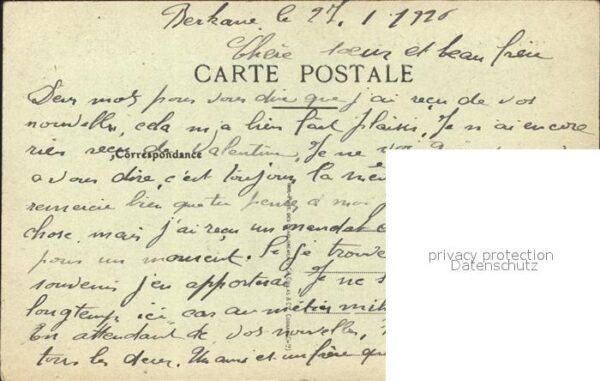 Berkane le 27. 1. 1926
Chère sœur et beau frère
CARTE POSTALE
Deux mots pour vous dire que j'ai reçu de vos
nouvelles, cela m'a bien fait plaisir, Je n'ai encore
rien reçu de Valentin, Je ne vois
Correspondance
a vous dire, c'est toujours la mê
remercie bien que tu penses a moi
chose, mais j'ai reçu un mandat
pour un moment. Si je trouve
souvenir j'en apporterai, Je ne s
longtemps ici, car au métier mili
En attendant de vos nouvelles,
tous les deux. Un ami et un frère qu
privacy protection
Datenschutz